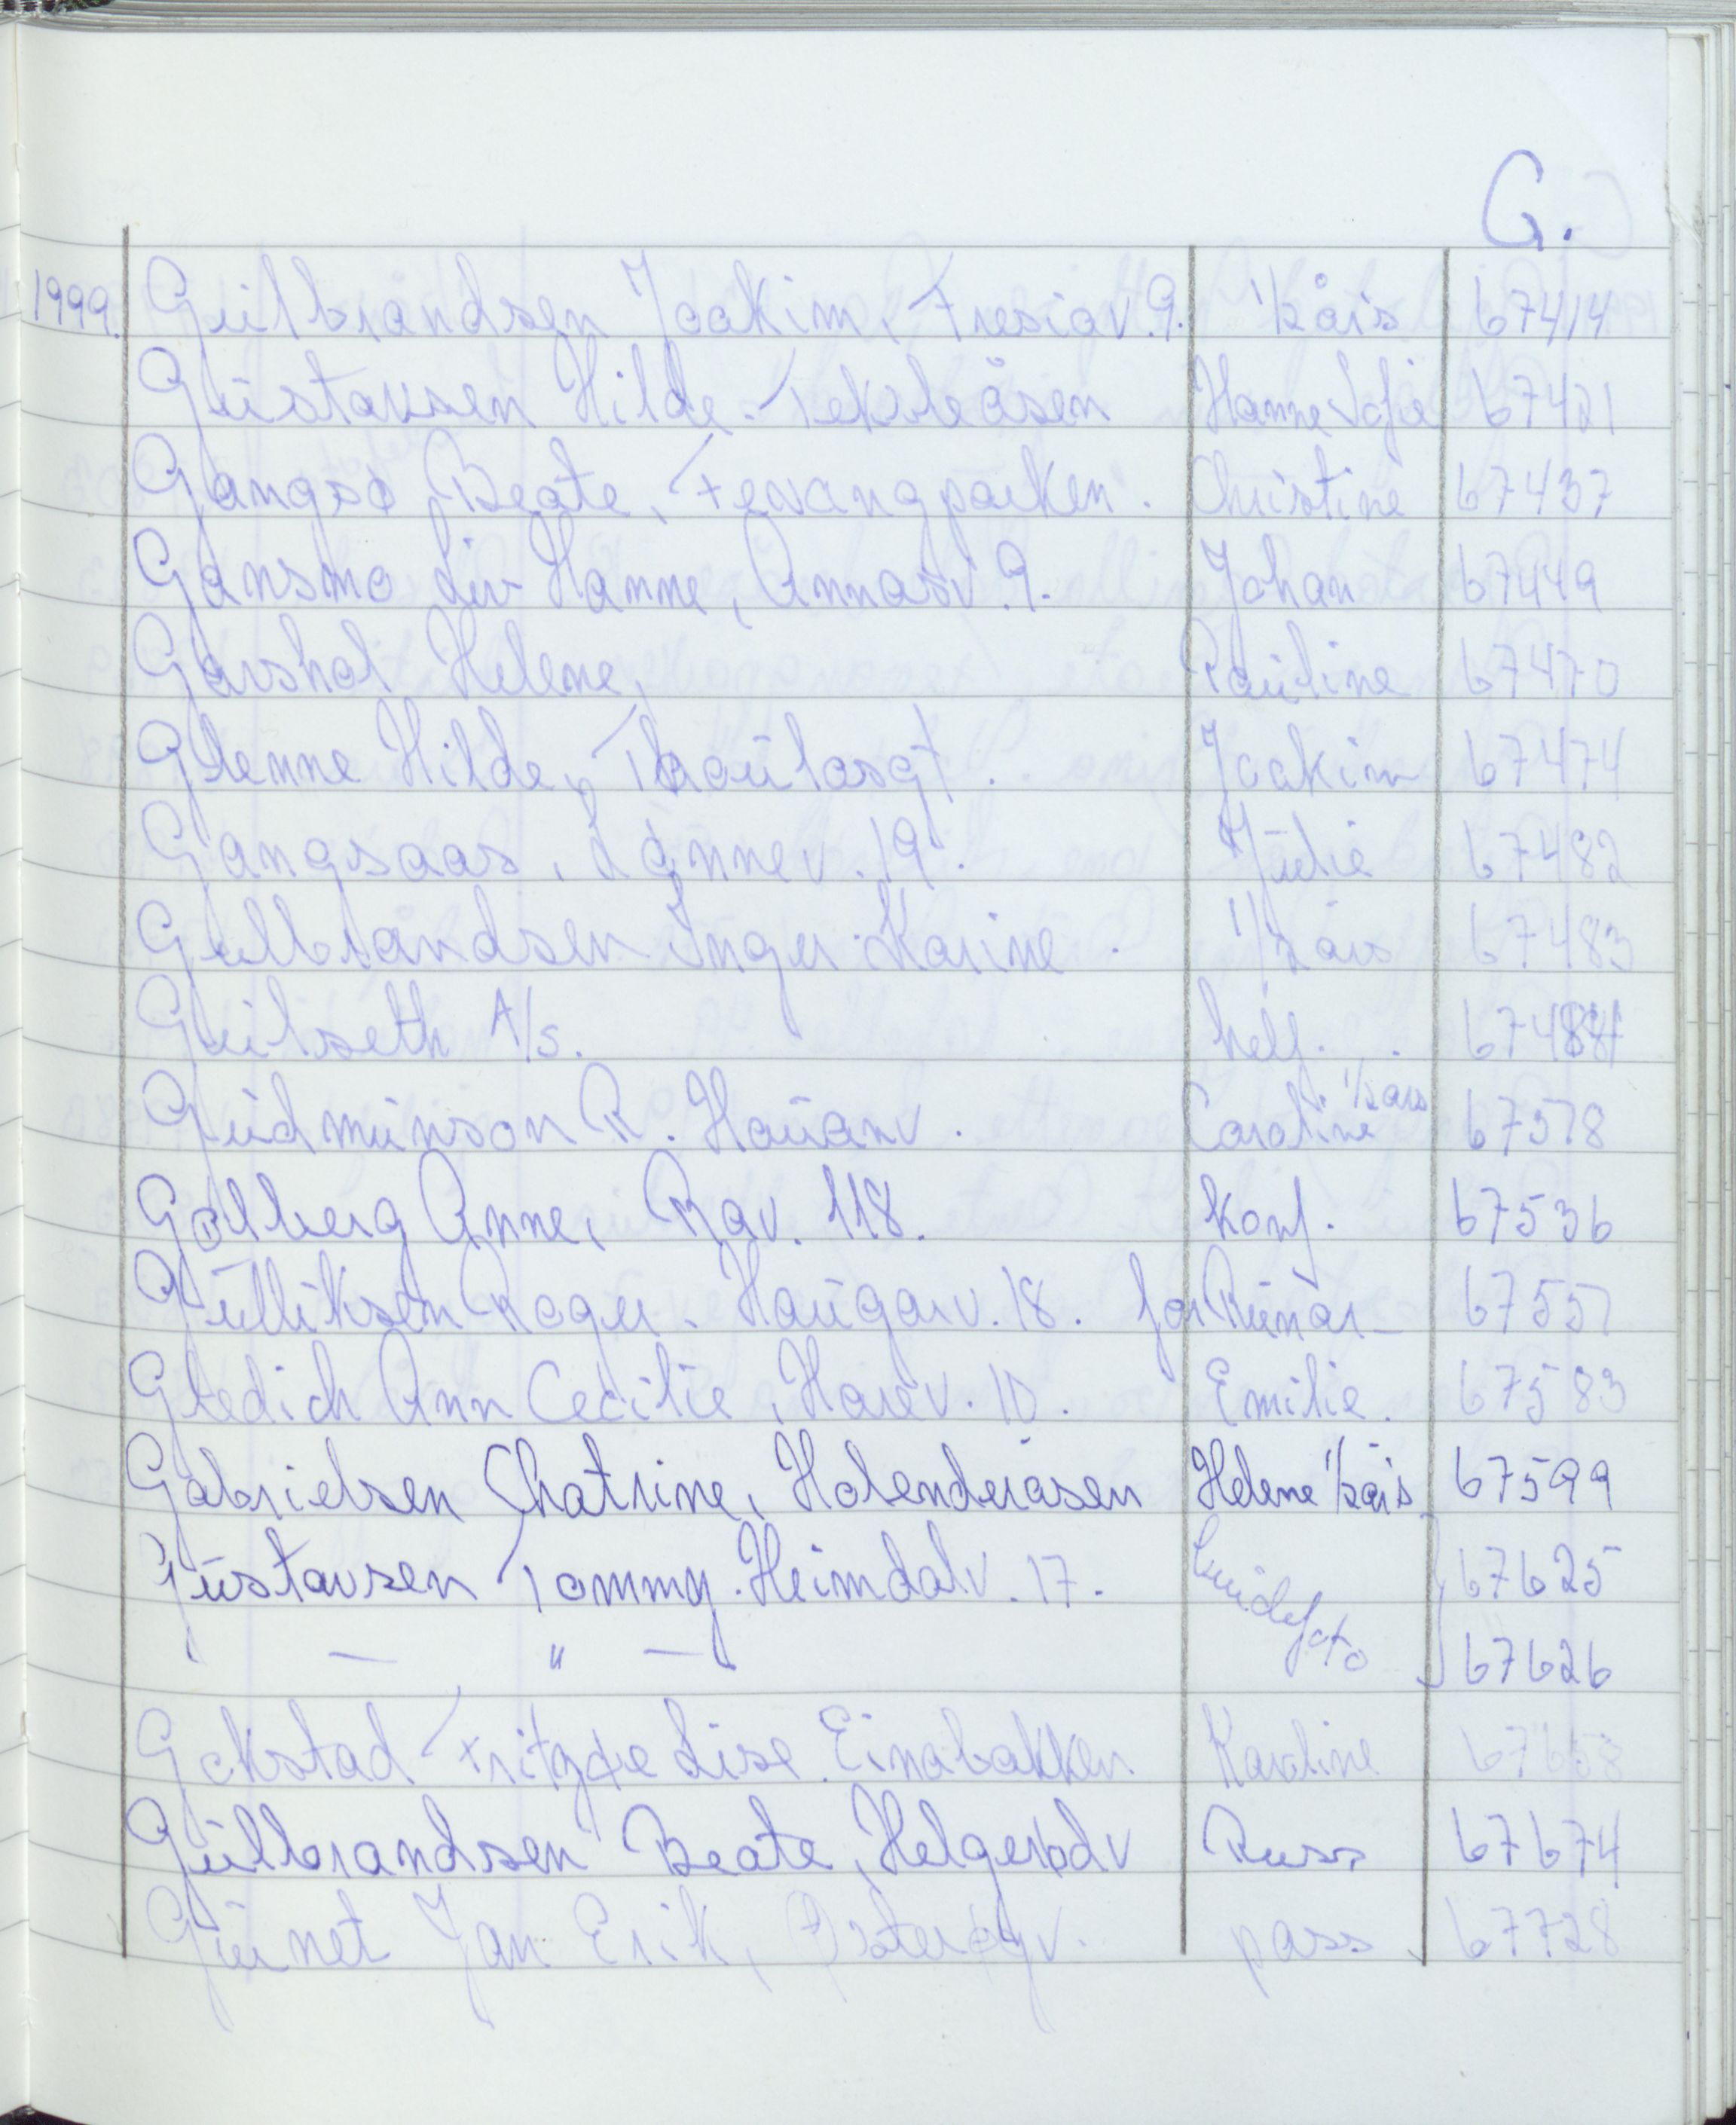 G.
1999. Gulbrandsen Joakim, Fresiav. 9. 1/2 års 67414
Gustavsen Hilde. Veksleåsen Hanne Sofie 67421
Gangsø Beate, Fevangparken. Christine 67437
Gansmo Liv Hanne, Annasv. 9. Johan 67449
Garshol Helene, Pauline 67470
Glenne Hilde, Thaulosgt. Joakim 67474
Gangsaas, Lønnev. 19. Julie 67482
Gulbrandsen Inger Karine. 1/2 års 67483
Gulseth A/s.
Gudmunson R. Hauanv. Caroline 1/2 års 67518
Golberg Anne, Rav. 118. Konf. 67536
Gulliksen Roger. Haugarv. 18. for Runar 67557
Gledich Ann Cecilie, Harev. 10. Emilie. 67583
Gabrielsen Chatrine, Holenderåsen Helene 1/2 års 67599
Gustavsen Tommy. Heimdalv. 17. 67625
— " — 67626
Gokstad Fritzøe Lise. Einabakken Karoline 67658
Gulbrandsen Beate, Helgerødv Russ 67674
Gunet Jan Erik, pass 67728